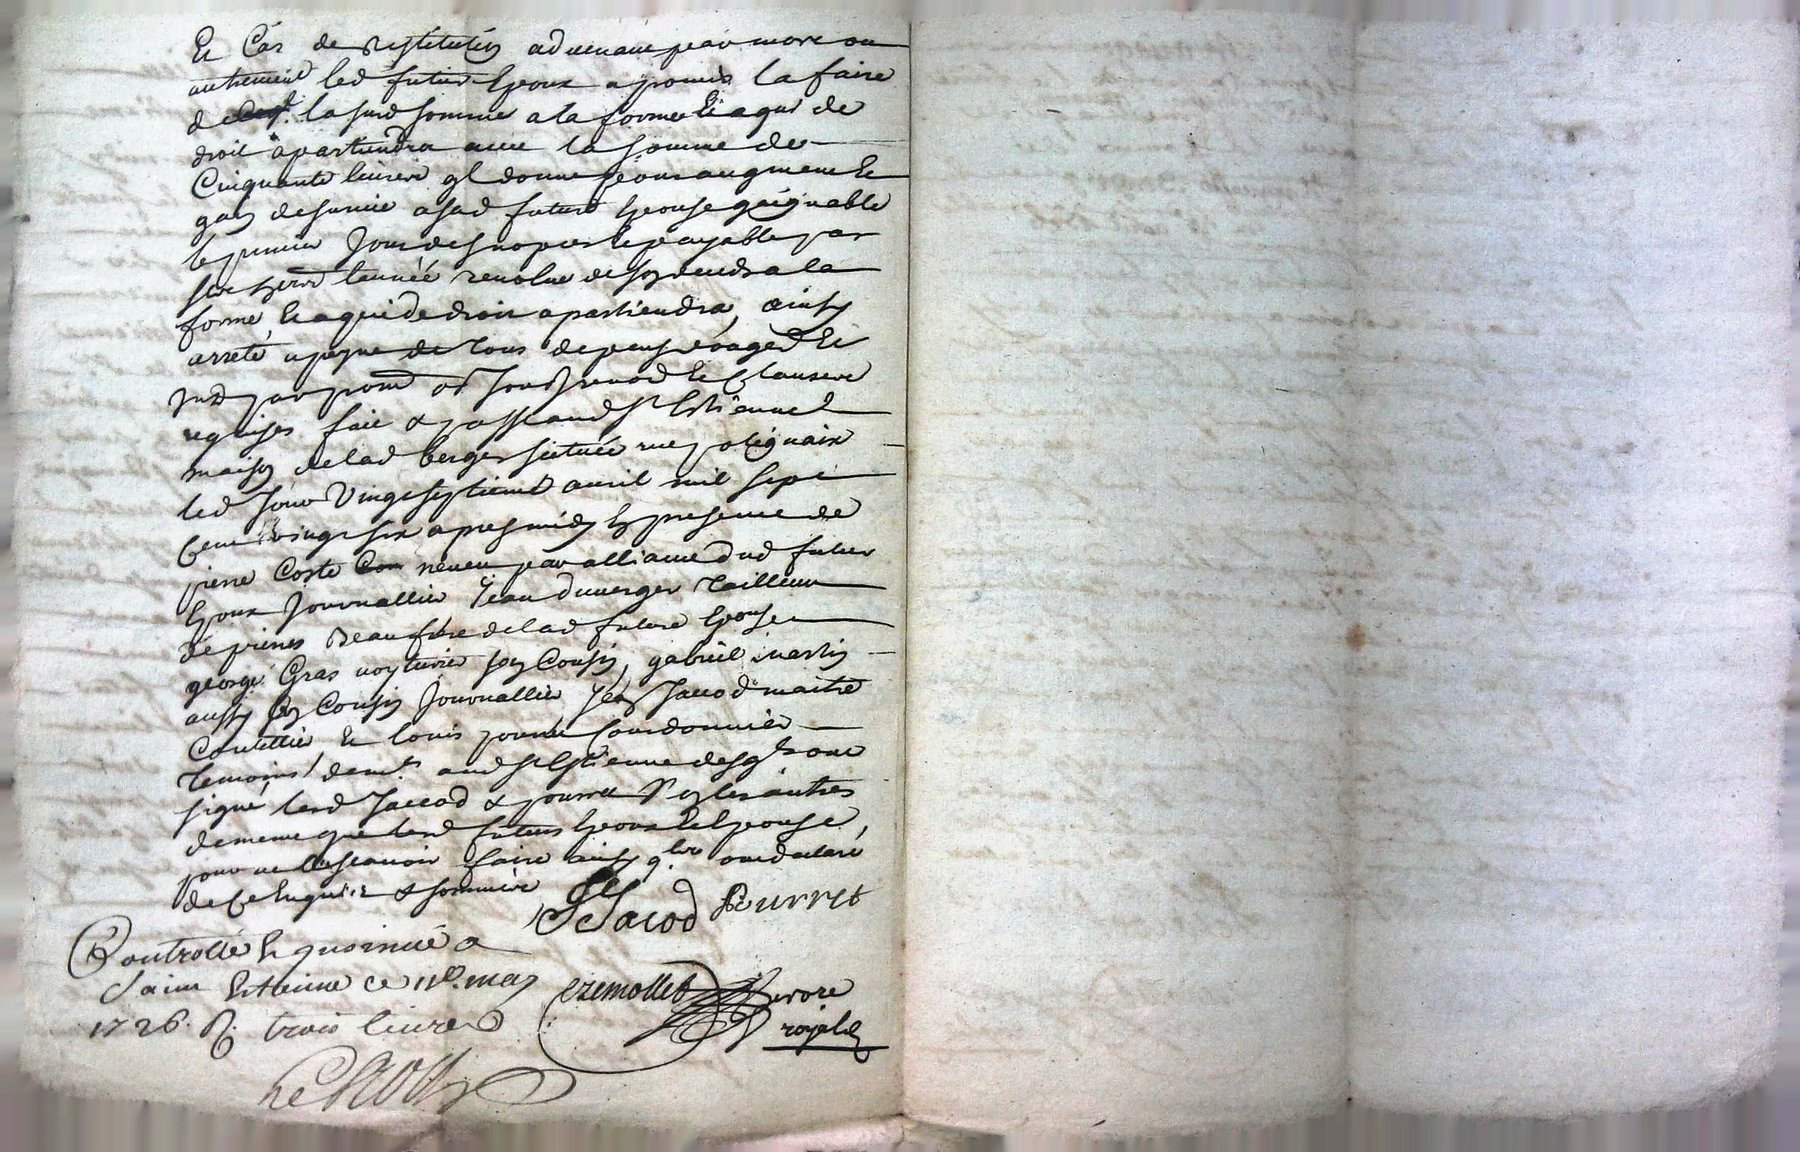 Et Cas de restitution advenant par mort ou
autrement led futur Epoux a promis la faire
de lasusd somme a la forme Et a qui de
droit apartiendra avec la somme de
Cinquante livres ql donne pour augment Et
gain de survie a sad future Epouse gaignable
le premier Jour des nopces Et payable par
ses her. lannée revolue de son deceds a la
forme Et a qui de droit apartiendra, ainsy
arreté a peyne de tous depens domages Et
par prom. ob. soub. renod. Et Clauses
requises fait & passé aud St Estienne
maison de lad berger sictuée rue polignaix
led Jour Vingt septieme avril mil sept
Cent vingt six apres midy En presence de
pierre Coste neveu par alliance dud futur
Epoux Journallier Jean duverger tailleur
de pierres Beaufrere de lad future Epouse
george Gras voyturier son Cousin, gabriel martin
aussy son Cousin Journallier Jean Jacod maitre
Coutellier Et louis pourret Courdonnier
temoins demts. aud St Estienne desqls ont
signé lesd Jaccod & pourret Non les autres
de meme que lesd futurs Epoux Et Epouse
pour ne le scavoir faire ainsy qls. ont declaré
de Ce Enquis & sommés
Jacod Pourret
Controllé Et insinué a
Saint Estienne ce may
1726. R. trois livres
Ezemollet notre
royal